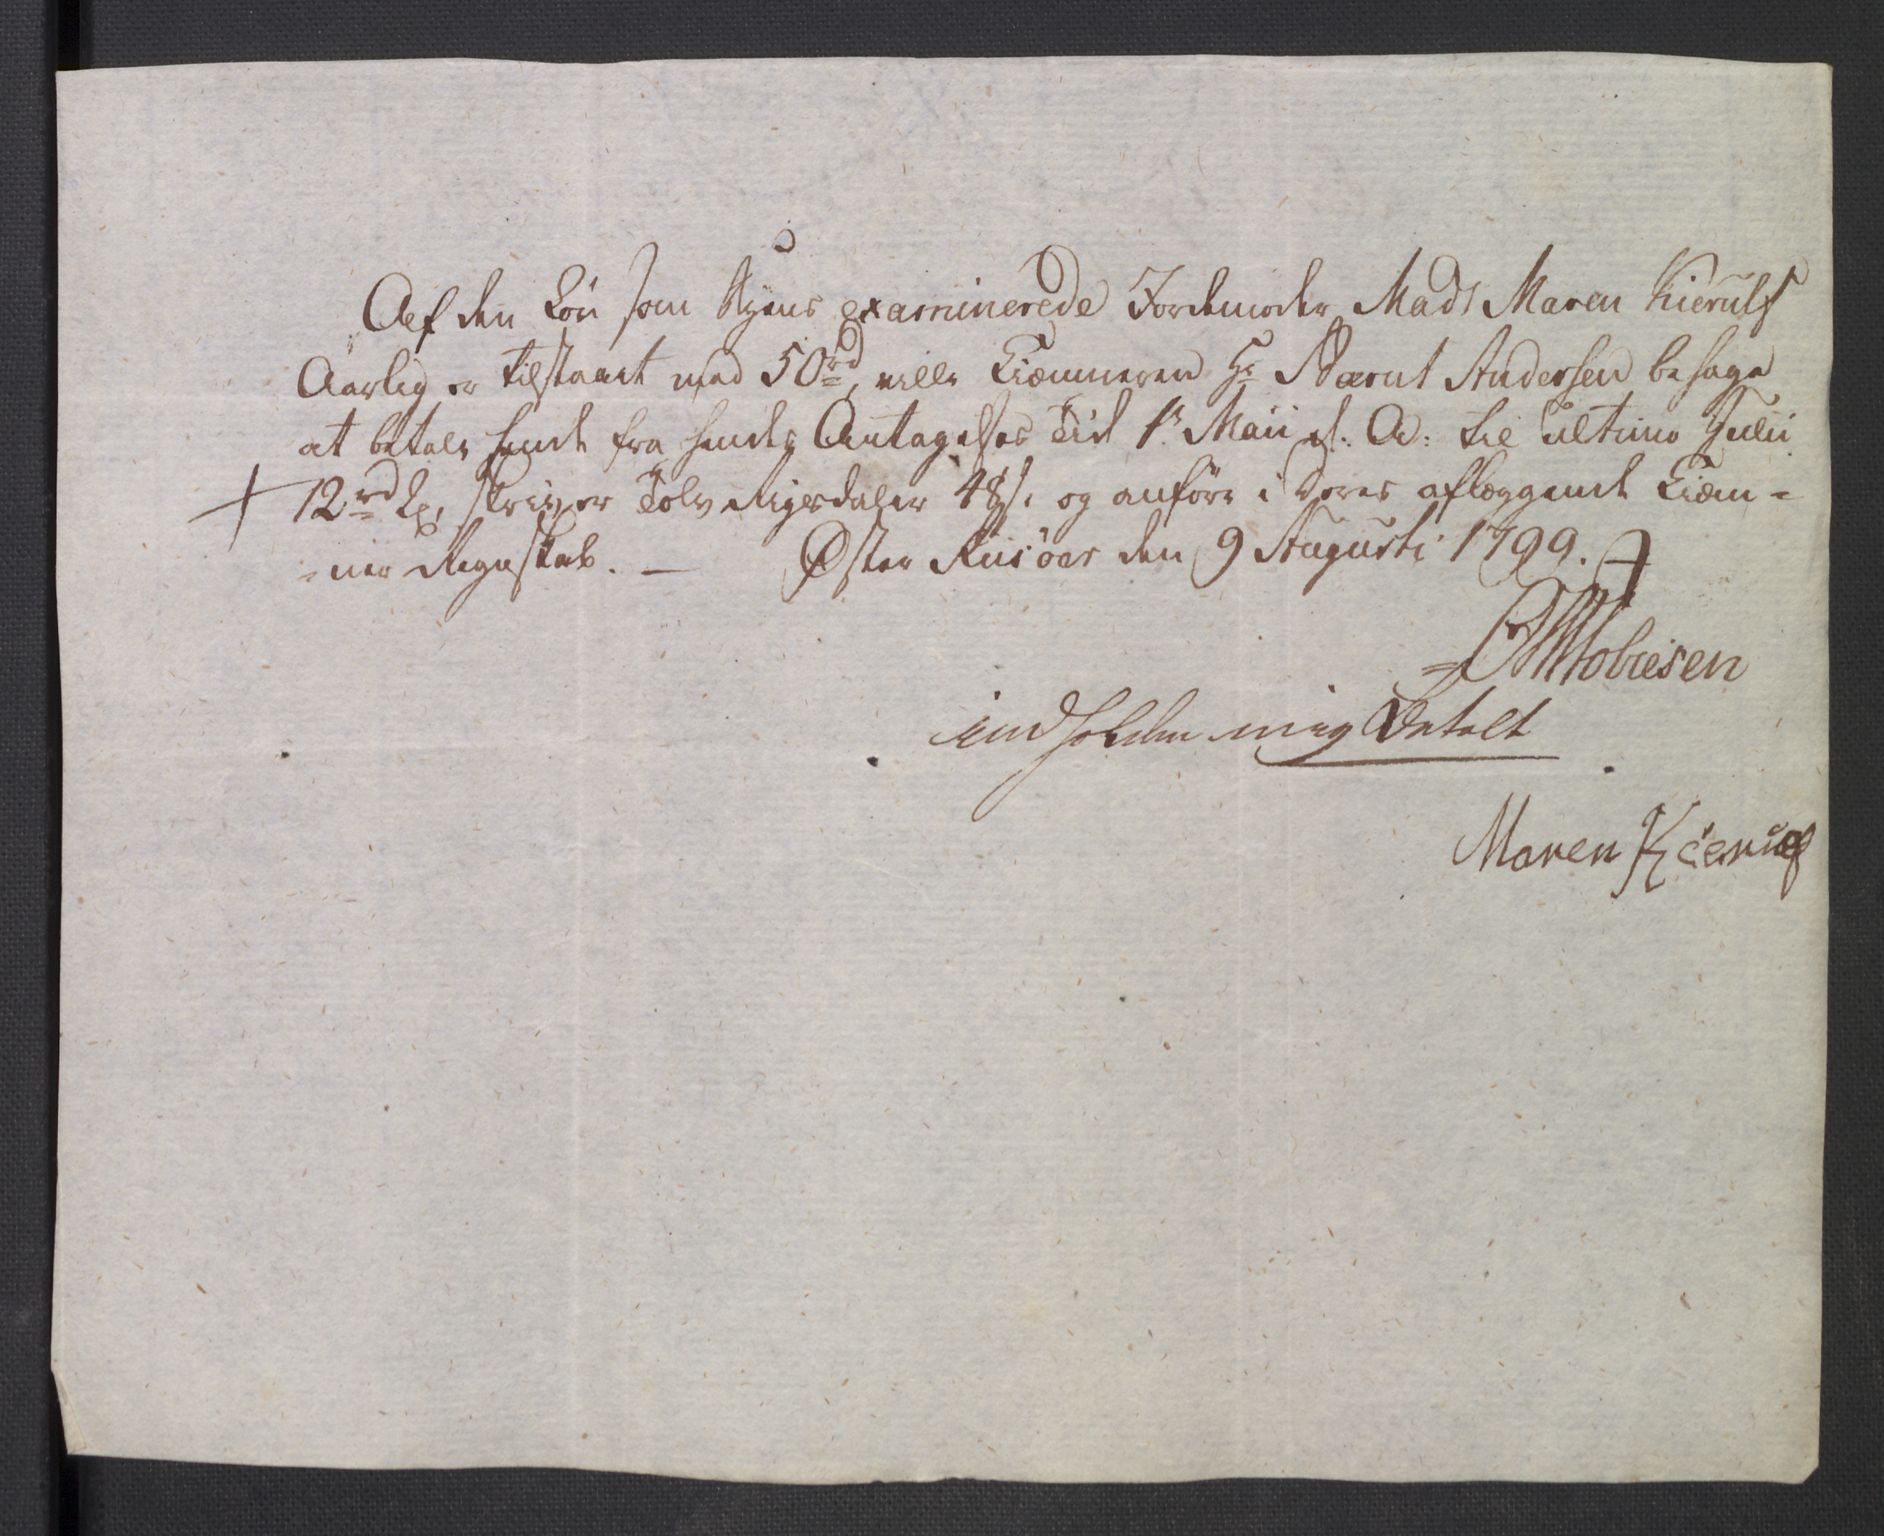 Aef den Løn som Byens examinerede Jordemoder Mads Maren Kierulf
Aarlig er tilstaaet med 50rd, ville Kiæmneren Hr Bærnt Andersen behage
at betale hende fra hendes Antagelses Tid 1te Maii d: A: til ultimo Julii
12rd 2, skriver Tolv Rigsdaler 48 s. og anføre i Deres aflæggende Kiæm-
-ner Regnskab. — Øster Riisöer den 9 Augusti 1799.
Tobiesen
indholden mig Betalt
Maren Kierulf